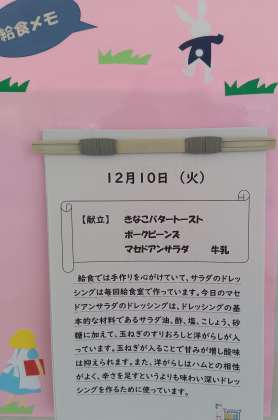 給食メモ
12月10日 （火）
【献立】 きなこバタートースト
ポークビーンズ
マセドアンサラダ 牛乳
給食では手作りを心がけていて、サラダのドレッ
シングは毎回給食室で作っています。今日のマセ
ドアンサラダのドレッシングは、ドレッシングの基
本的な材料であるサラダ油、酢、塩、こしょう、砂
糖に加えて、玉ねぎのすりおろしと洋がらしが入
っています。玉ねぎが入ることで甘みが増し酸味
は抑えられます。また、洋がらしはハムとの相性
がよく、辛さを足すというよりも味わい深いドレッ
シングを作るために使っています。